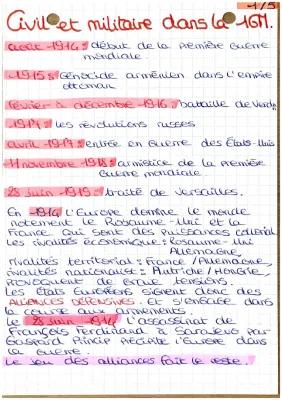 1/5
Civil et militaire dans la 1GM.
août 1914 : début de la première guerre
mondiale.
1915 : Génocide arménien dans l'empire
ottoman
février à décembre 1916 : bataille de Verdun
1917 : les révolutions russes
avril 1917 : entrée en guerre des États-Unis
11 novembre 1918 : armistice de la première
guerre mondiale
28 juin 1919 : traité de Versailles.
En 1914 l'Europe domine le monde
notement le Rosaume-Uni et la
France qui sont des puissances colonial.
Les rivalités économique : Rosaume-Uni
Allemagne,
rivalités territorial : France / Allemagne,
rivalités nationalist : Autriche / Hongrie,
provoquent de grave tensions.
Les États Européens signent donc des
ALLIANCES DÉFENSIVES. et s'engage dans
la course aux armements.
Le 28 juin 1914 l'assassinat de
François Ferdinand à Sarajevo par
Gaspard Princip précipite l'Europe dans
la guerre.
Le jeu des alliances fait le reste.